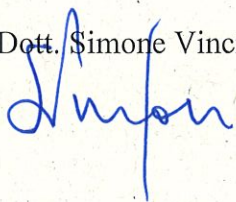 Dott. Simone Vinc